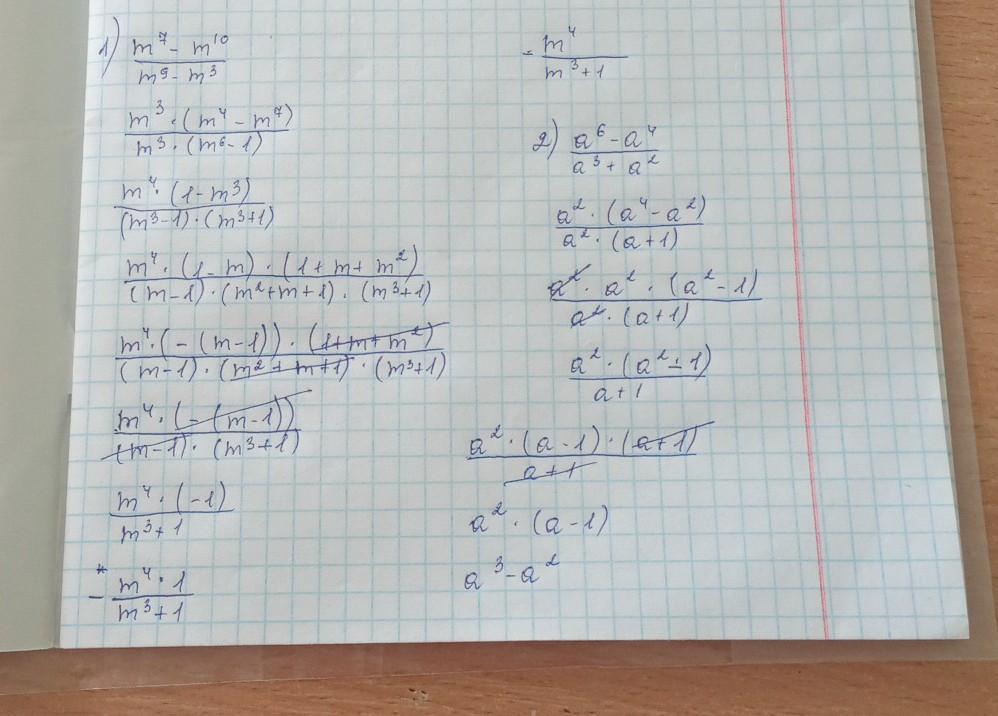 1) (m⁷ - m¹⁰)/(m⁹ - m³)
(m³ · (m⁴ - m⁷))/(m³ · (m⁶ - 1))
(m⁴ · (1 - m³))/((m³ - 1) · (m³ + 1))
(m⁴ · (1 - m) · (1 + m + m²))/((m - 1) · (m² + m + 1) · (m³ + 1))
(m⁴ · (-(m - 1)) · (1 + m + m²))/((m - 1) · (m² + m + 1) · (m³ + 1))
(m⁴ · (-(m - 1)))/((m - 1) · (m³ + 1))
(m⁴ · (-1))/(m³ + 1)
* - (m⁴ · 1)/(m³ + 1)
- m⁴/(m³ + 1)
2) (a⁶ - a⁴)/(a³ + a²)
(a² · (a⁴ - a²))/(a² · (a + 1))
(a² · a² · (a² - 1))/(a² · (a + 1))
(a² · (a² - 1))/(a + 1)
(a² · (a - 1) · (a + 1))/(a + 1)
a² · (a - 1)
a³ - a²